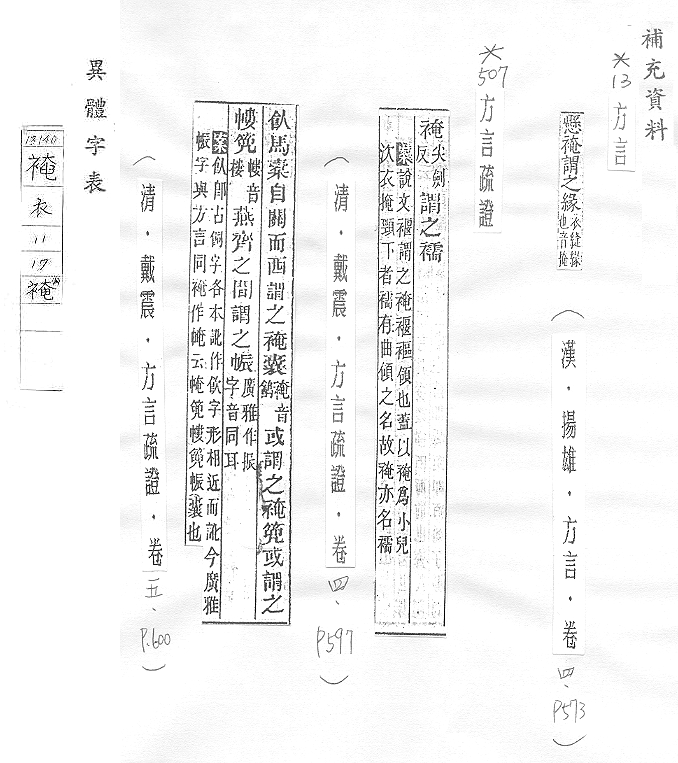 補充資料
*13 方言
懸裺謂之緣衣縫緣也音掩
（漢．揚雄．方言．卷四、P573）
*507 方言疏證
裺尖劍反謂之襦
案說文褗謂之裺褗䙔領也蓋以裺為小兒
次衣掩頸下者襦有曲領之名故裺亦名襦
（清．戴震．方言疏證．卷四、P597）
飤馬橐自關而西謂之裺囊裺音鶕或謂之裺篼或謂之
㡞篼㡞音樓燕齊之間謂之帪廣雅作振字音同耳
案飤即古飼字各本訛作飲字形相近而訛今廣雅
帪字與方言同裺作㡋云㡋篼㡞篼帪囊也
（清．戴震．方言疏證．卷五、P.600）
異體字表
13140
裺
衣
11
17
裺